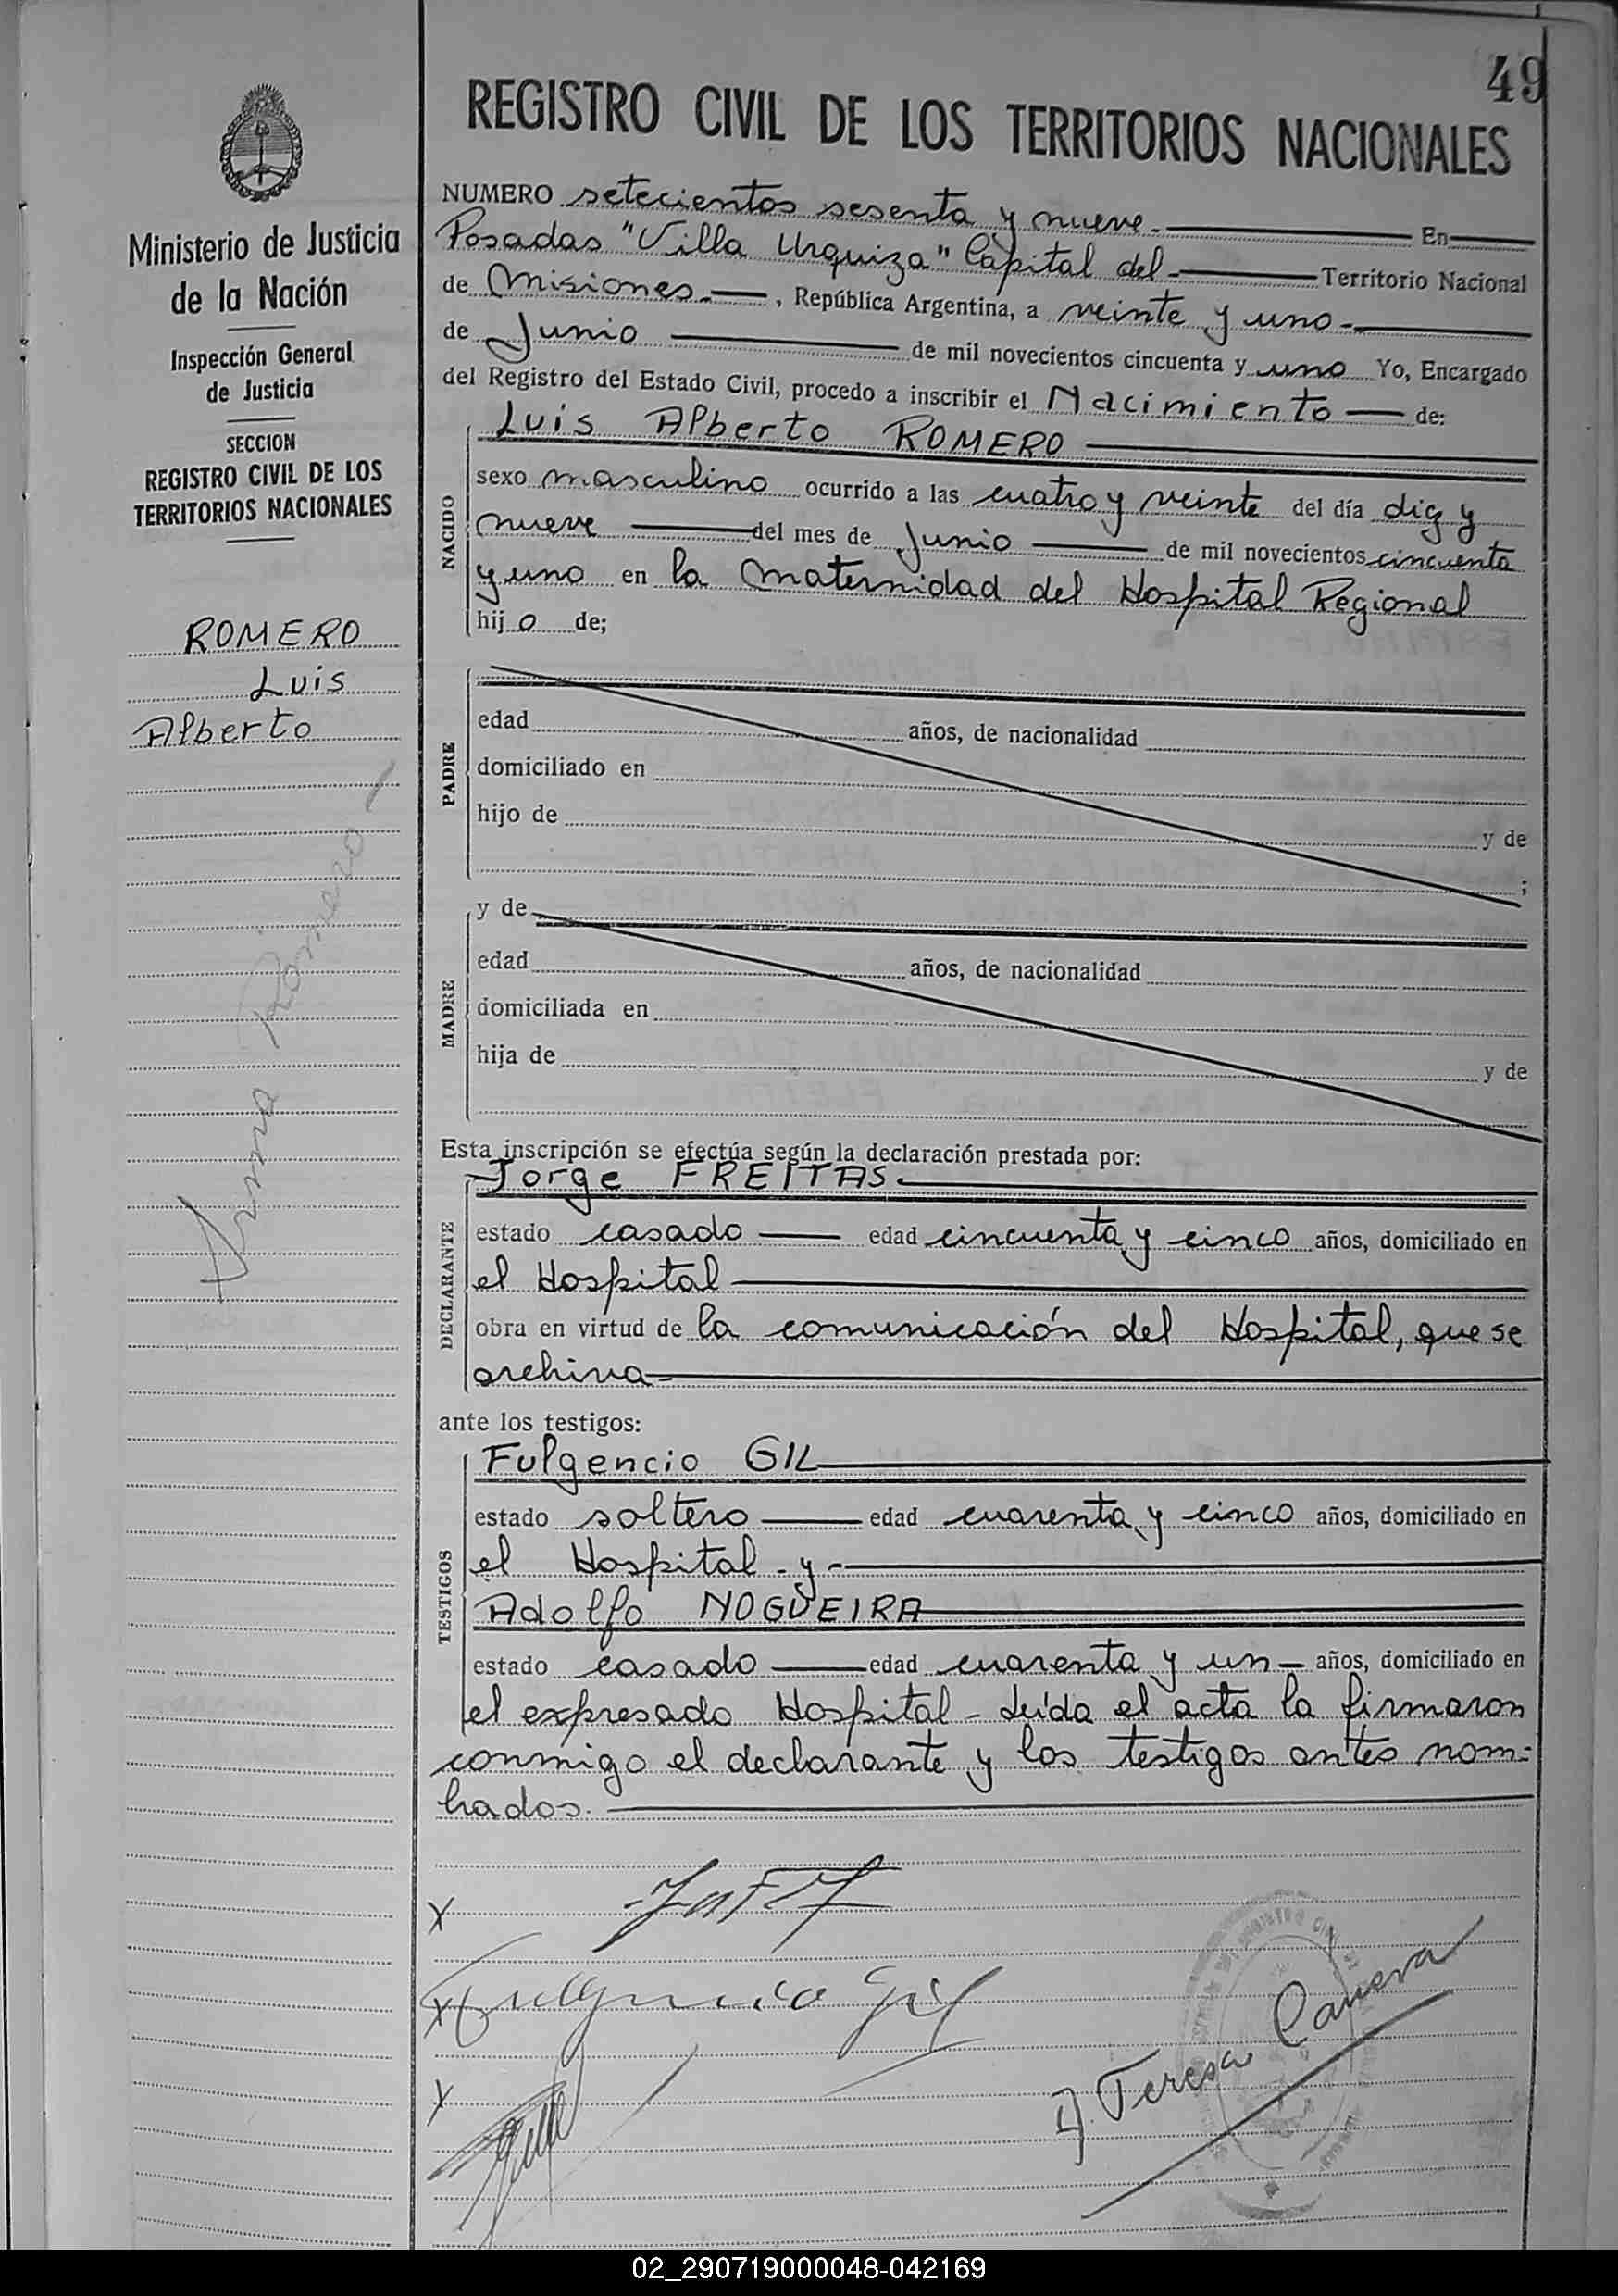 49
REGISTRO CIVIL DE LOS TERRITORIOS NACIONALES
Ministerio de Justicia
de la Nación
Inspección General
de Justicia
SECCION
REGISTRO CIVIL DE LOS
TERRITORIOS NACIONALES
ROMERO
Luis
Alberto
Romero
NUMERO setecientos sesenta y nueve.- En
Posadas "Villa Urquiza" Capital del - Territorio Nacional
de Misiones.- , República Argentina, a veinte y uno -
de Junio de mil novecientos cincuenta y uno Yo, Encargado
del Registro del Estado Civil, procedo a inscribir el Nacimiento de:
NACIDO
Luis Alberto ROMERO
sexo masculino ocurrido a las cuatro y veinte del día diez y
nueve del mes de Junio de mil novecientos cincuenta
y uno en la Maternidad del Hospital Regional
hij o de;
PADRE
edad años, de nacionalidad
domiciliado en
hijo de y de
;
MADRE
y de
edad años, de nacionalidad
domiciliada en
hija de y de
Esta inscripción se efectúa según la declaración prestada por:
DECLARANTE
Jorge FREITAS.
estado casado edad cincuenta y cinco años, domiciliado en
el Hospital
obra en virtud de la comunicación del Hospital, que se
archiva
ante los testigos:
TESTIGOS
Fulgencio GIL
estado soltero edad cuarenta y cinco años, domiciliado en
el Hospital - y -
Adolfo NOGUEIRA
estado casado edad cuarenta y un años, domiciliado en
el expresado Hospital - Leída el acta la firmaron
conmigo el declarante y los testigos antes nom-
brados.
X
X Fulgencio Gil
X
Teresa Canera
02_290719000048-042169